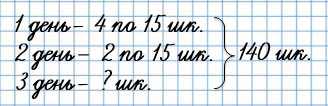 1 день – 4 по 15 шк.
2 день – 2 по 15 шк.
3 день – ? шк.
140 шк.